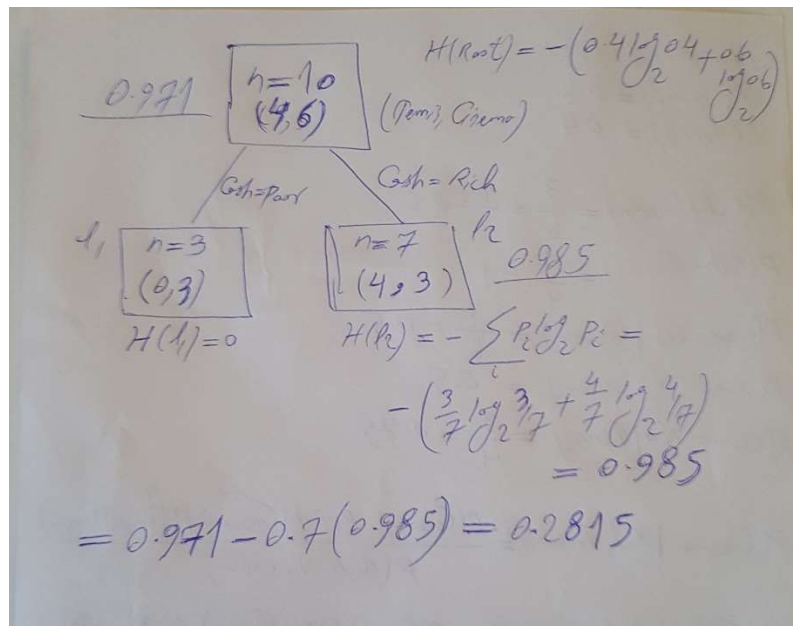 H(Root) = -(0.4 log₂ 0.4 + 0.6 log₂ 0.6)
0.971
n=10
(4,6)
(Tennis, Cinema)
Cash=Poor
Cash=Rich
l₁
n=3
(0,3)
H(l₁)=0
l₂
n=7
(4,3)
0.985
H(l₂) = - ∑ᵢ Pᵢ log₂ Pᵢ =
-(3/7 log₂ 3/7 + 4/7 log₂ 4/7)
= 0.985
= 0.971 - 0.7(0.985) = 0.2815